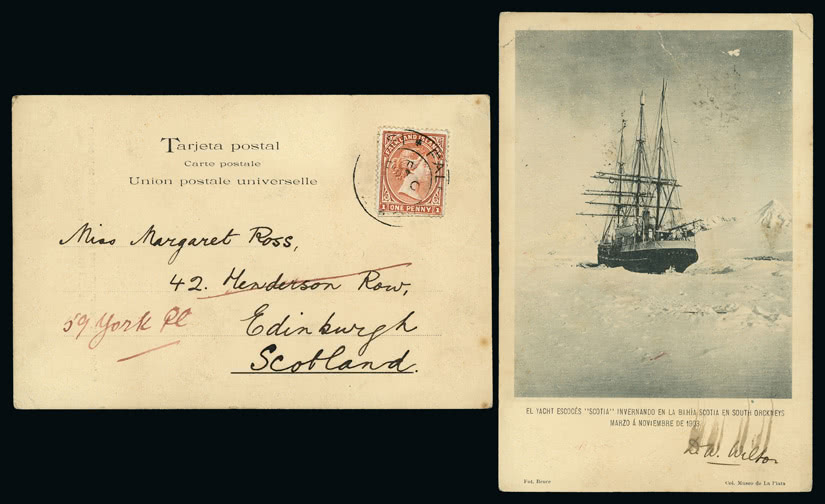 Tarjeta postal
Carte postale
Union postale universelle
FALKLAND ISLANDS
ONE PENNY
1 1
FAL
Miss Margaret Ross,
42. Henderson Row,
59 York Pl
Edinburgh
Scotland.
EL YACHT ESCOCÉS "SCOTIA" INVERNANDO EN LA BAHÍA SCOTIA EN SOUTH ORCKNEYS
MARZO Á NOVIEMBRE DE 1903
D. W. Wilton
Fot. Bruce
Col. Museo de La Plata